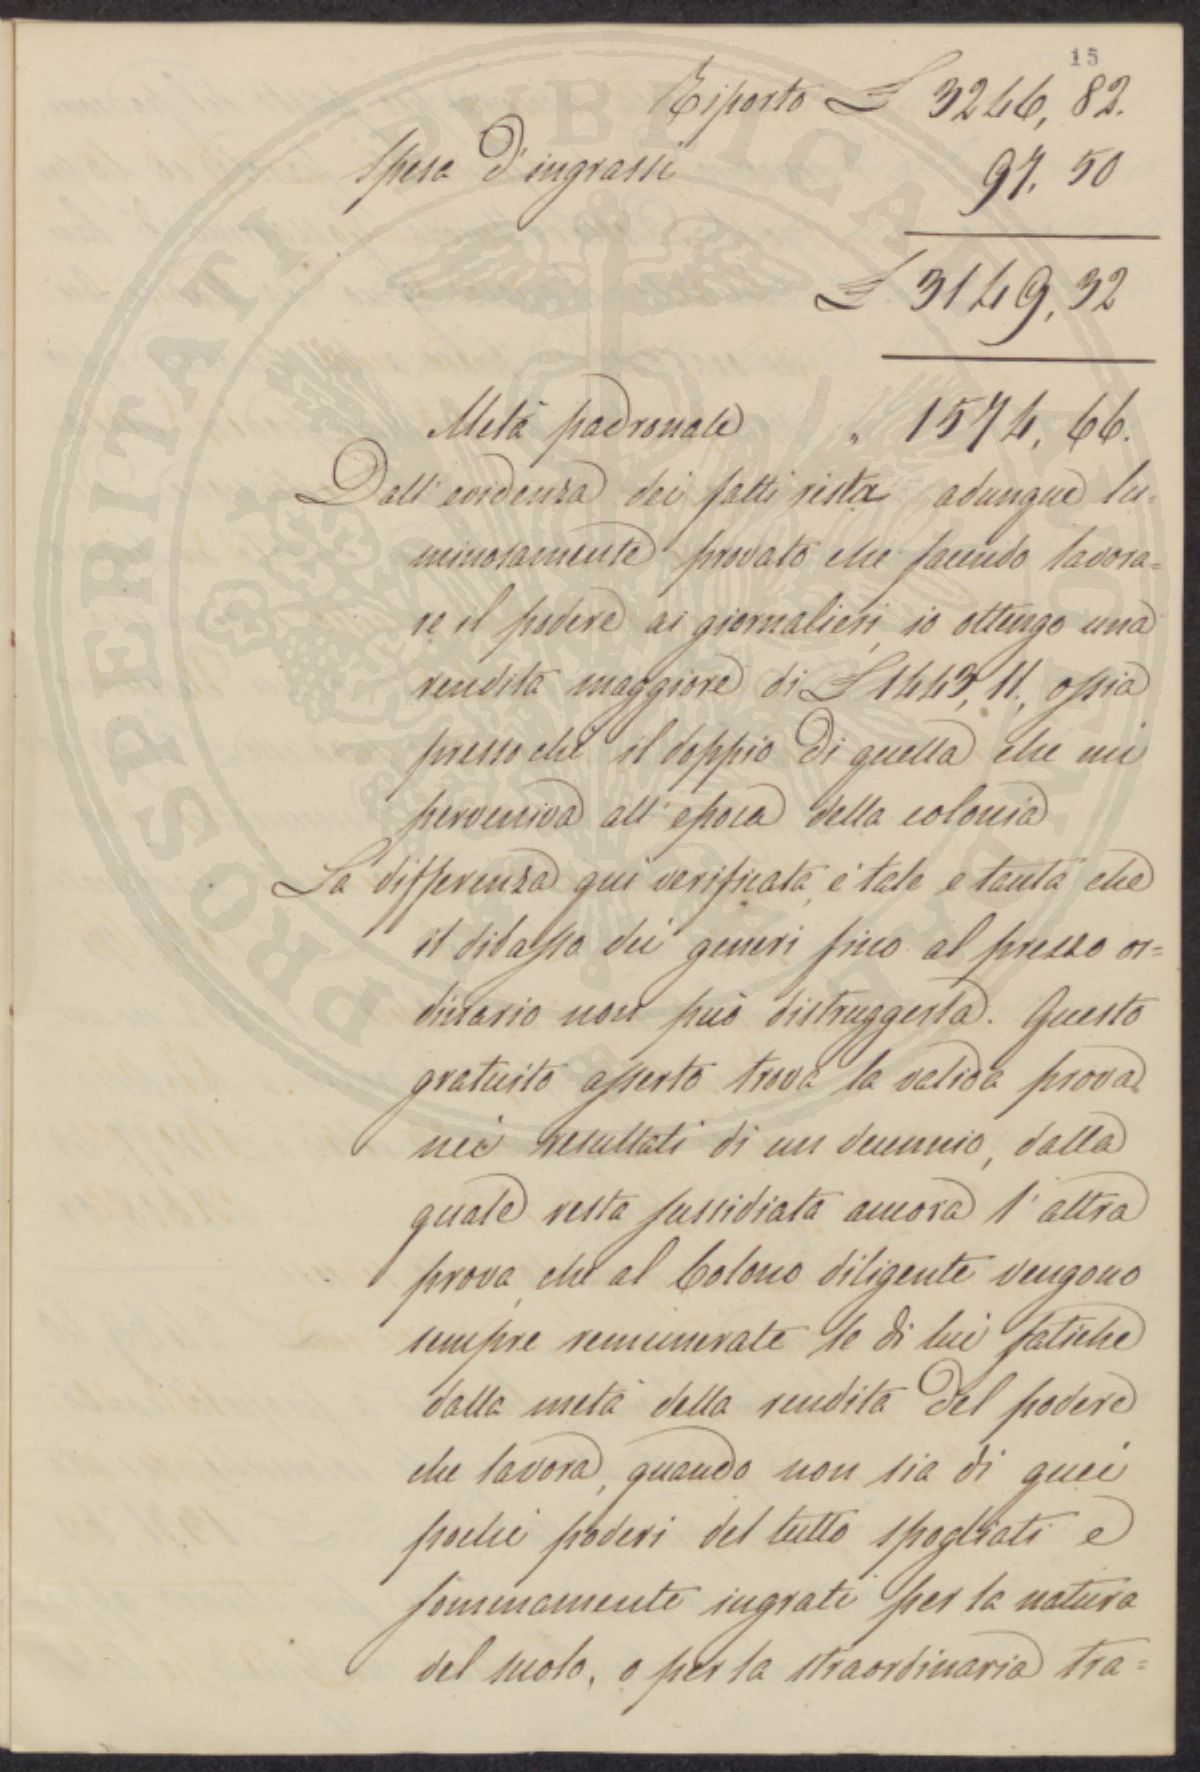 15
Riporto £ 3246, 82.
Spesa d'ingrassi 97. 50
£ 3149, 32
Metà padronale " 1574, 66.
Dall' evidenza dei fatti resta adunque lu=
minosamente provato che facendo lavora=
re il podere ai giornalieri, io ottengo una
rendita maggiore di £ 1443, 11., ossia
pressochè il doppio di quella che mi
perveniva all' epoca della colonia
La differenza qui verificata, è tale e tanta che
il ribasso dei generi fino al prezzo or=
dinario non può distruggerla. Questo
gratuito asserto trova la valida prova
nei resultati di un decennio, dalla
quale resta sussidiata ancora l' altra
prova, che al Colono diligente vengono
sempre remunerate le di lui fatiche
dalla metà della rendita del podere
che lavora, quando non sia di quei
pochi poderi del tutto spogliati e
sommamente ingrati per la natura
del suolo, o per la straordinaria tra=
PROSPERITATI PUBLICAE